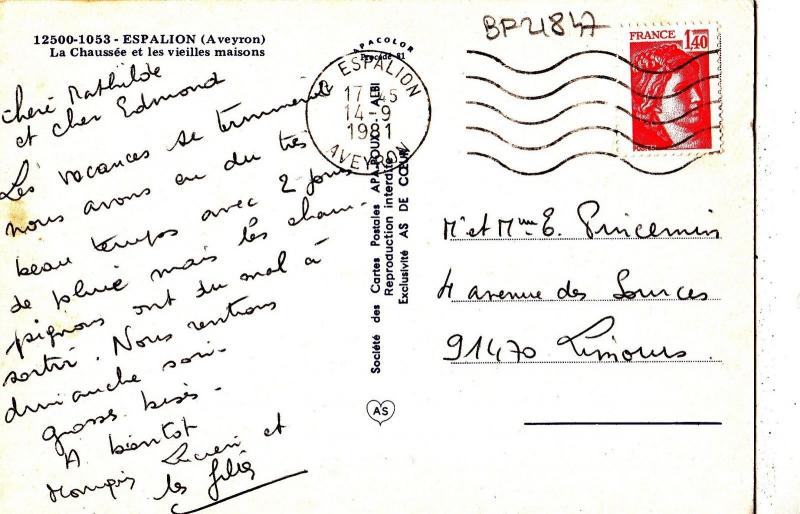 12500-1053 - ESPALION (Aveyron)
La Chaussée et les vieilles maisons
APACOLOR
Procédé 81
BP21847
FRANCE 1,40
POSTES
ESPALION
17 45
14-9
1981
AVEYRON
Chère Mathilde
et cher Edmond
Les vacances se terminent
nous avons eu du très
beau temps avec 2 jours
de pluie mais les cham-
pignons ont du mal à
sortir. Nous rentrons
dimanche soir.
grosses bises.
A bientot
Lucien et
les filles
Société des Cartes Postales APA-POUX - ALBI
Reproduction interdite
Exclusivité AS DE CŒUR
AS
Mr et Mme E. Princemin
4 avenue des Sources
91470 Limours.